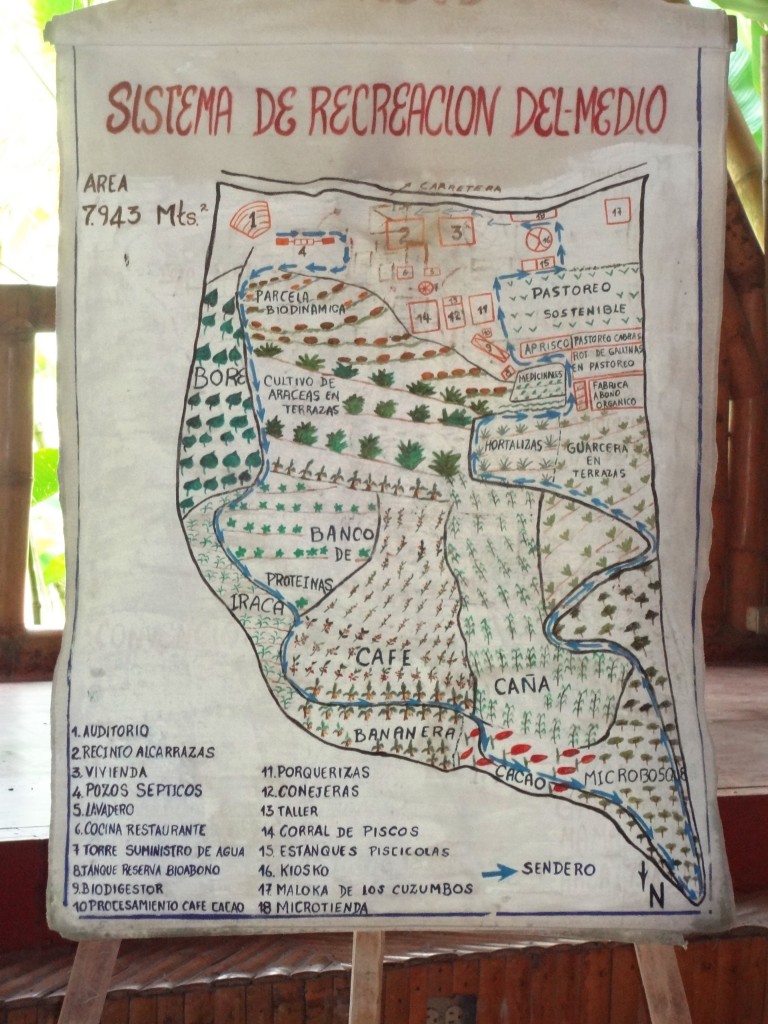 SISTEMA DE RECREACION DEL-MEDIO
AREA
7.943 Mts.²
CARRETERA
1
2
3
4
17
16
15
14
13
12
11
PARCELA
BIODINAMICA
PASTOREO
SOSTENIBLE
APRISCO
PASTOREO CABRAS
ROT. DE GALLINAS
EN PASTOREO
MEDICINALES
FABRICA
ABONO
ORGANICO
BORE
CULTIVO DE
ARACEAS EN
TERRAZAS
HORTALIZAS
GUARCERA
EN
TERRAZAS
BANCO
DE
PROTEINAS
IRACA
CAFE
CAÑA
BANANERA
CACAO
MICROBOSQUE
1. AUDITORIO
2 RECINTO ALCARRAZAS
3. VIVIENDA
4. POZOS SEPTICOS
5. LAVADERO
6. COCINA RESTAURANTE
7 TORRE SUMINISTRO DE AGUA
8 TANQUE RESERVA BIOABONO
9. BIODIGESTOR
10 PROCESAMIENTO CAFE CACAO
11. PORQUERIZAS
12. CONEJERAS
13 TALLER
14 CORRAL DE PISCOS
15 ESTANQUES PISCICOLAS
16. KIOSKO
17 MALOKA DE LOS CUZUMBOS
18 MICROTIENDA
SENDERO
N